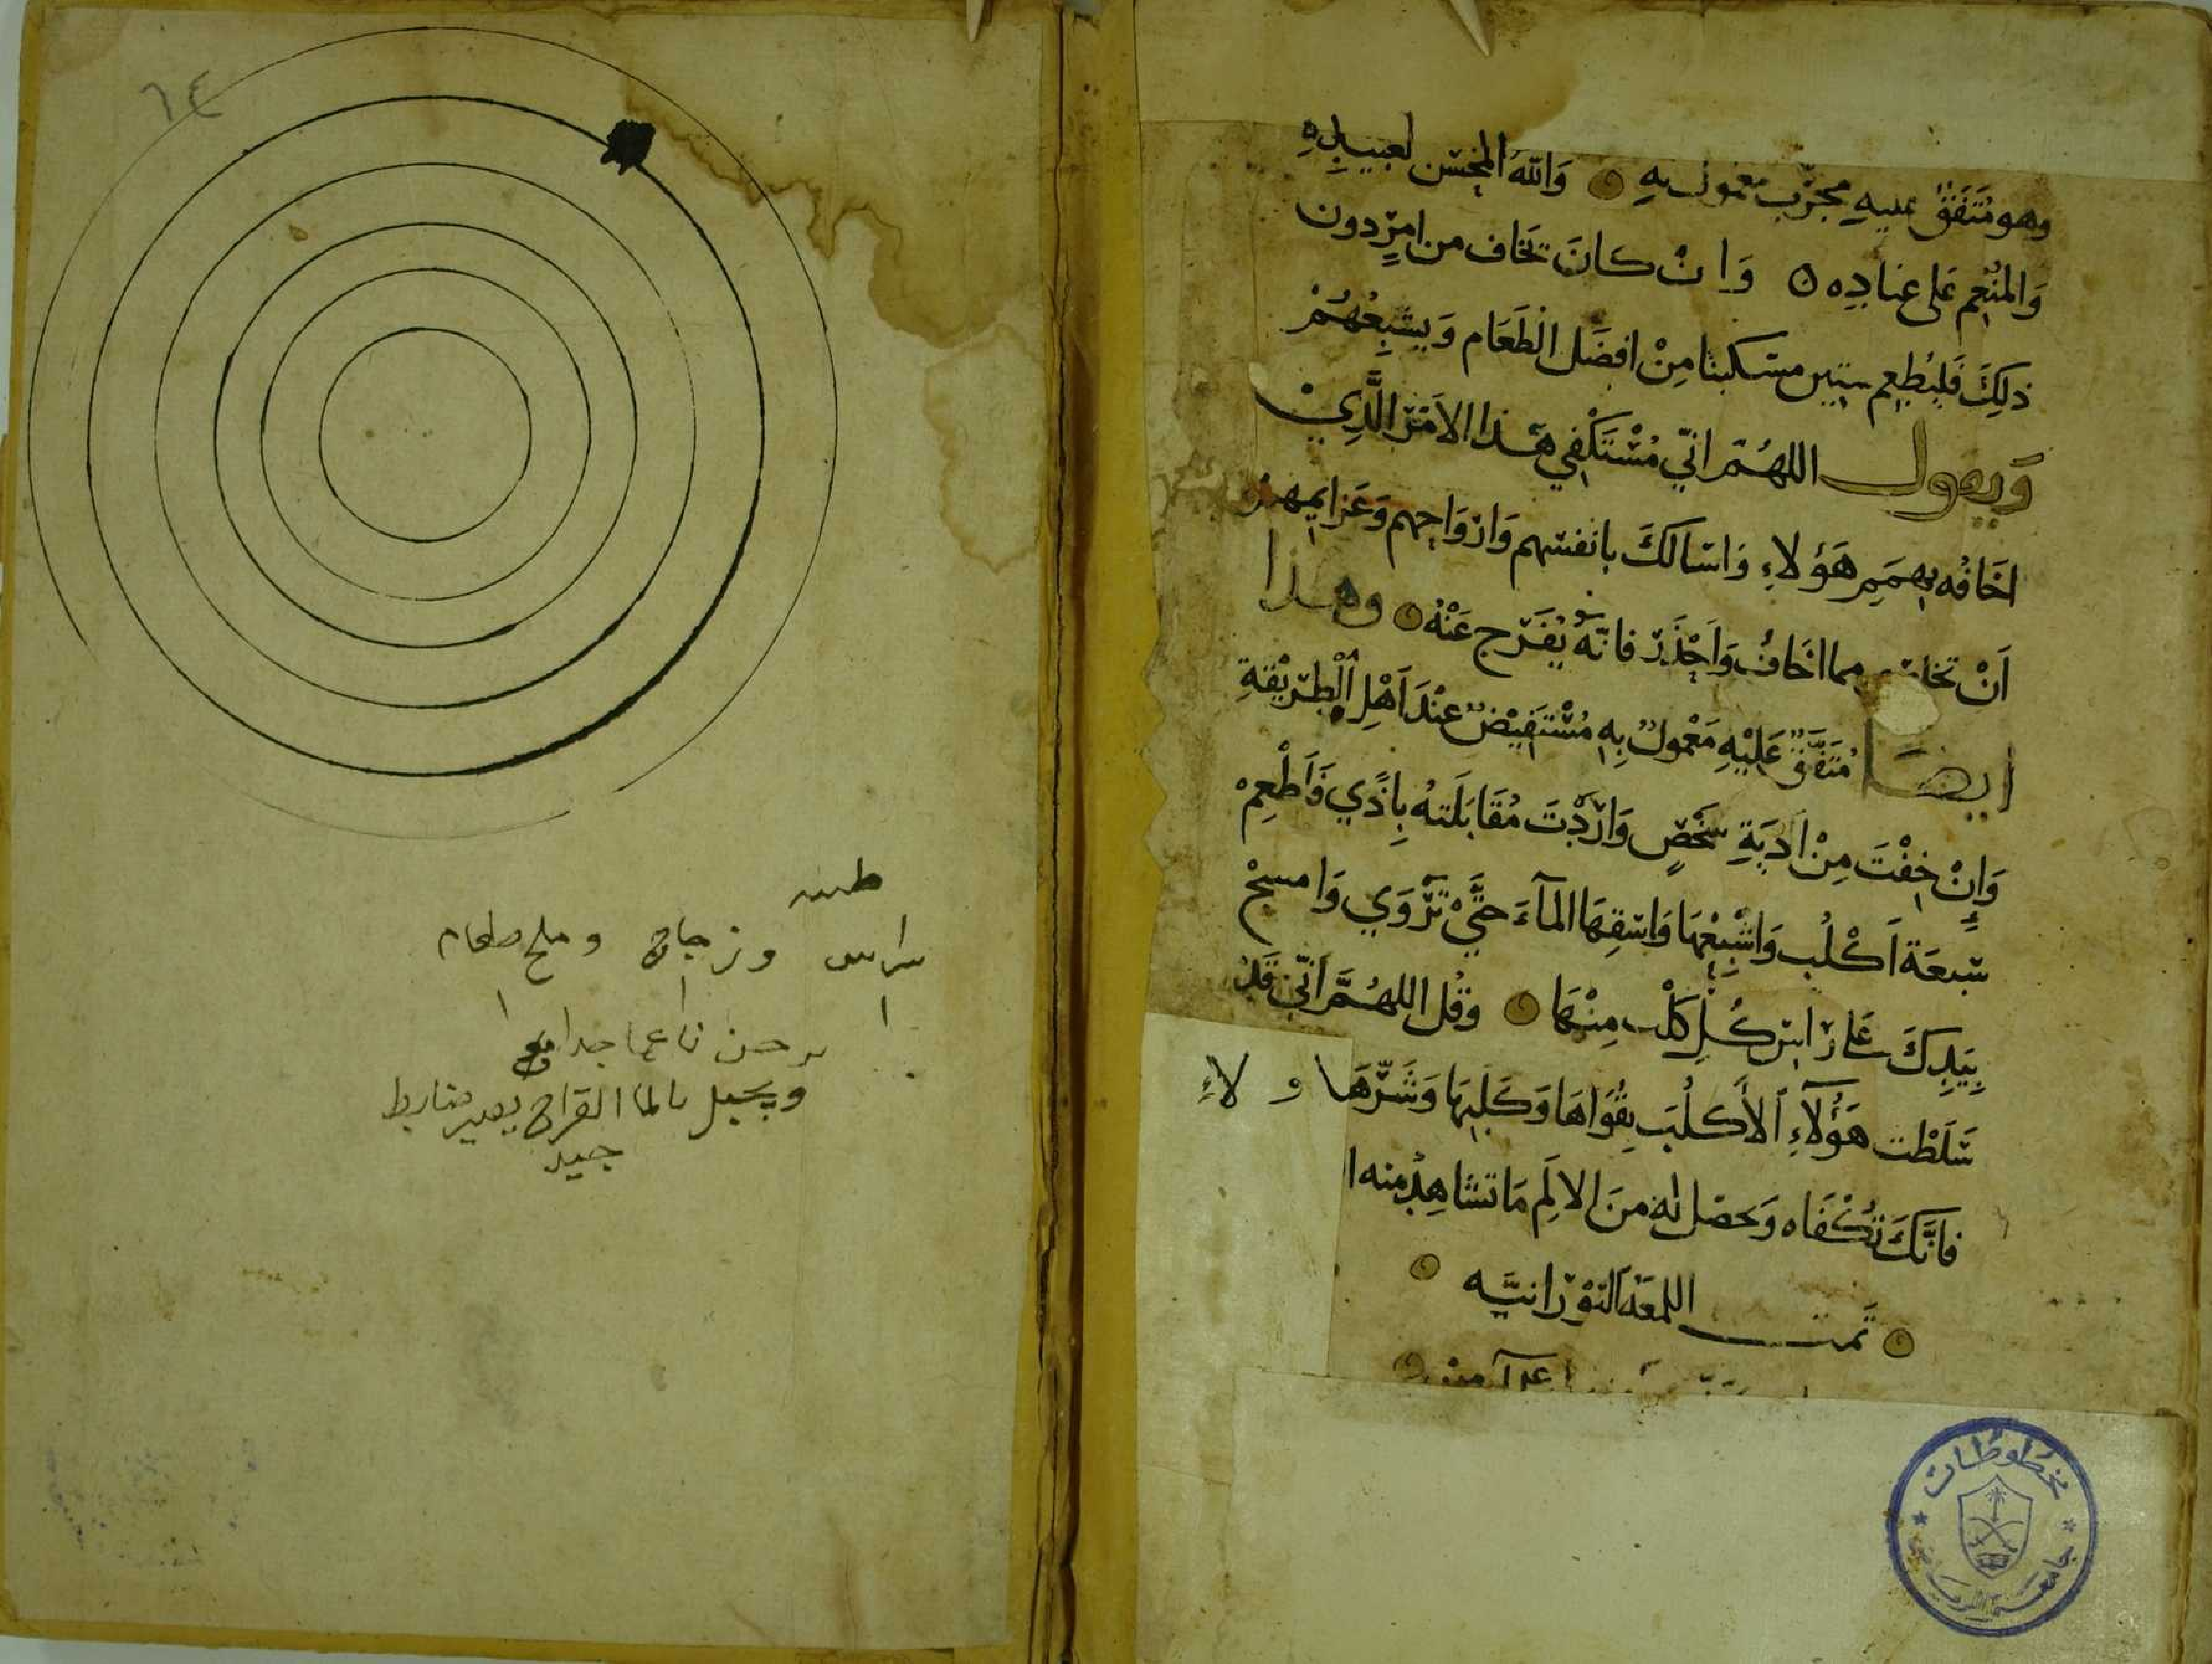 وهو مُتَفَقٌ عليهِ مجرّب معمول بهِ وَاللهُ المحسن لعبيدِهِ
وَالمنُعِم عَلى عبادِه وَاِنْ كانَ تخَاف من امرٍدون
ذلِكَ فَليُطعِم ستين مسكينا مِنْ افضَل الطَعَام وَيشبِعُهُمْ
وَيقول اللهُمّ انّي مُسْتَكْفِي هذا الامْرَ الَّذِيْ
اخَافُه بِهمَمِ هَؤلاءِ وَاسالكَ بانفسهم وَارْوَاحِهم وَعَزايمِهمْ
اَنْ مما اخَافُ وَاَحْذَرْ فانّهُ يُفَرّج عَنْهُ وهذا
ايضًا مُتَفَقٌ عَليْهِ مَعْمولٌ بِهِ مُسْتَفِيْضٌ عِنْدَ اَهْلِ الْطِرِيْقةِ
وَاِنْ خِفْتَ مِنْ اَديَةِ شخْصٍ وَارَدْتَ مُقَابَلَتهُ بِاذًي فَاَطْعِمْ
سَبعَة اَكْلُب وَاشْبِعْهَا وَاسقِهَا المآءَ حتَّيْ تَرْوَي وَامسحْ
بِيَدِكَ عَلي رَاسِ كُلِ كلْب مِنْهَا وَقُل اللهُمَّ اَنّي قَدْ
سَلَطْت هَؤُلآءِ اَلأَكلُبَ بِقُوَاهَا وَكَلَبِهَا وَشَرّهَا و لاءِ
فانَّكَ تُكْفَاه وَيحصَل لهُ منَ الالَمِ مَا تشاهِدُ منه
تمت اللمعَة النوْرَانيَّه
مخطوطات
جامعة الرياض
٦٤
طىىه
سراس وزجاج وملح طعام
١ ١ ١
ناعما جدا
ويجبل بالما القراح يصير
جيد